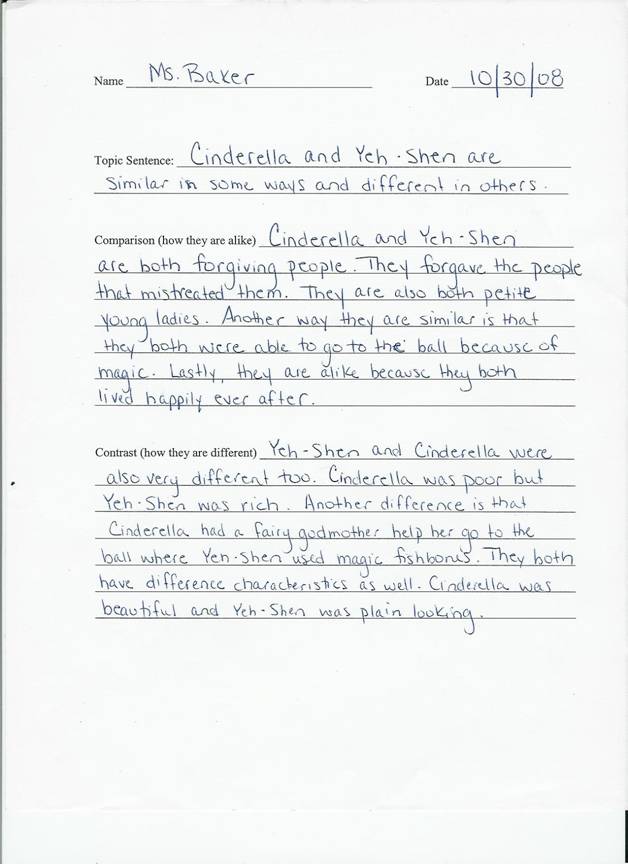 Name Ms. Baker Date 10/30/08
Topic Sentence: Cinderella and Yeh-Shen are
similar in some ways and different in others.
Comparison (how they are alike) Cinderella and Yeh-Shen
are both forgiving people. They forgave the people
that mistreated them. They are also both petite
young ladies. Another way they are similar is that
they both were able to go to the ball because of
magic. Lastly, they are alike because they both
lived happily ever after.
Contrast (how they are different) Yeh-Shen and Cinderella were
also very different too. Cinderella was poor but
Yeh-Shen was rich. Another difference is that
Cinderella had a fairy godmother help her go to the
ball where Yeh-Shen used magic fishbones. They both
have difference characteristics as well. Cinderella was
beautiful and Yeh-Shen was plain looking.